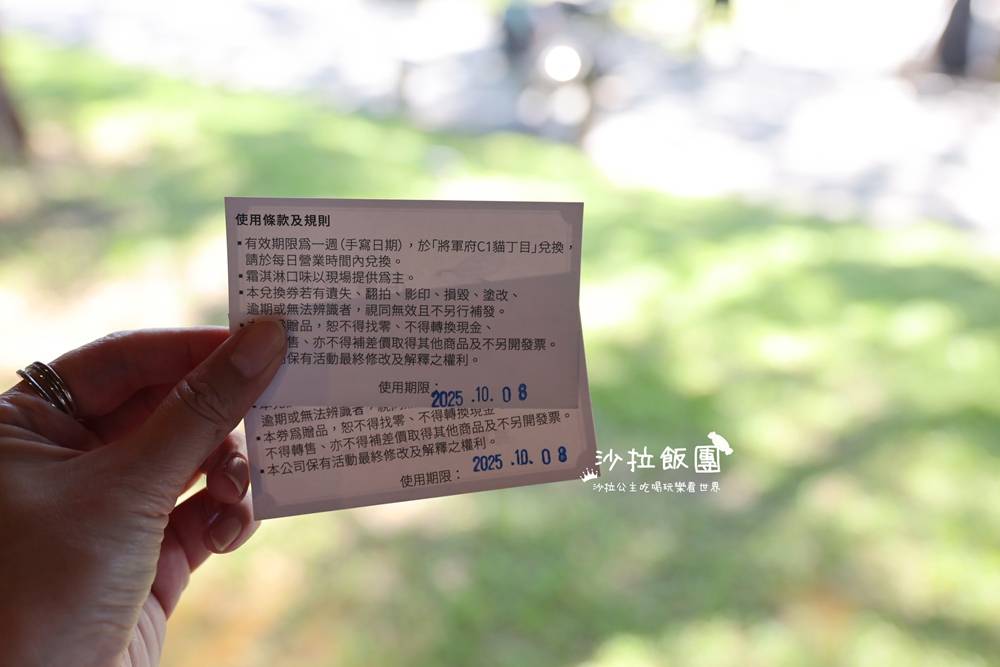 使用條款及規則
▪有效期限為一週(手寫日期)，於「將軍府C1貓丁目」兌換，
請於每日營業時間內兌換。
▪霜淇淋口味以現場提供為主。
▪本兌換券若有遺失、翻拍、影印、損毀、塗改、
逾期或無法辨識者，視同無效且不另行補發。
贈品，恕不得找零、不得轉換現金、
售、亦不得補差價取得其他商品及不另開發票。
保有活動最終修改及解釋之權利。
使用期限：2025.10.08
逾期或無法辨識者，視同
▪本券為贈品，恕不得找零、不得轉換現金、
不得轉售、亦不得補差價取得其他商品及不另開發票。
▪本公司保有活動最終修改及解釋之權利。
使用期限：2025.10.08
沙拉飯團
沙拉公主吃喝玩樂看世界